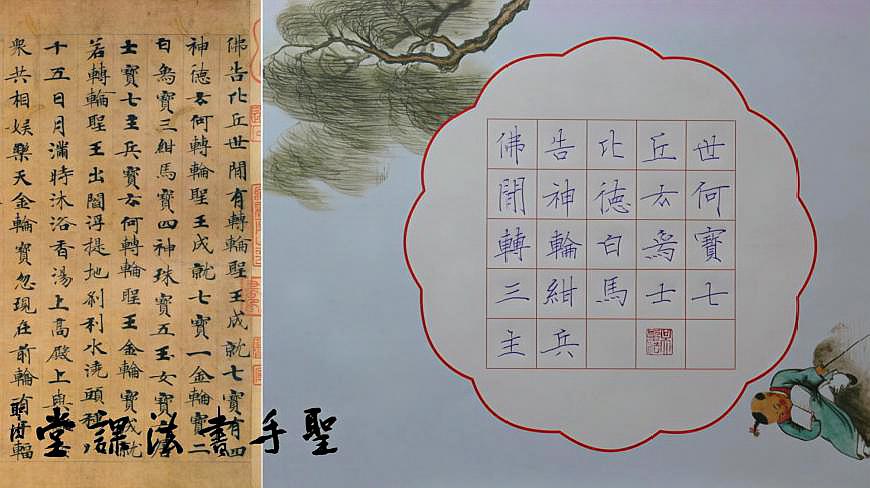 佛告比丘世間有轉輪聖王成就七寶有四
神德云何轉輪聖王成就七寶一金輪寶二
白象寶三紺馬寶四神珠寶五玉女寶
士寶七主兵寶云何轉輪聖王金輪寶成就
若轉輪聖王出閻浮提地剎利水澆頭種
十五日月滿時沐浴香湯上高殿上與
眾共相娛樂天金輪寶忽現在前輪有輻
聖手書法課堂
佛告比丘世
間神德云何
轉輪白象寶
三紺馬士七
主兵